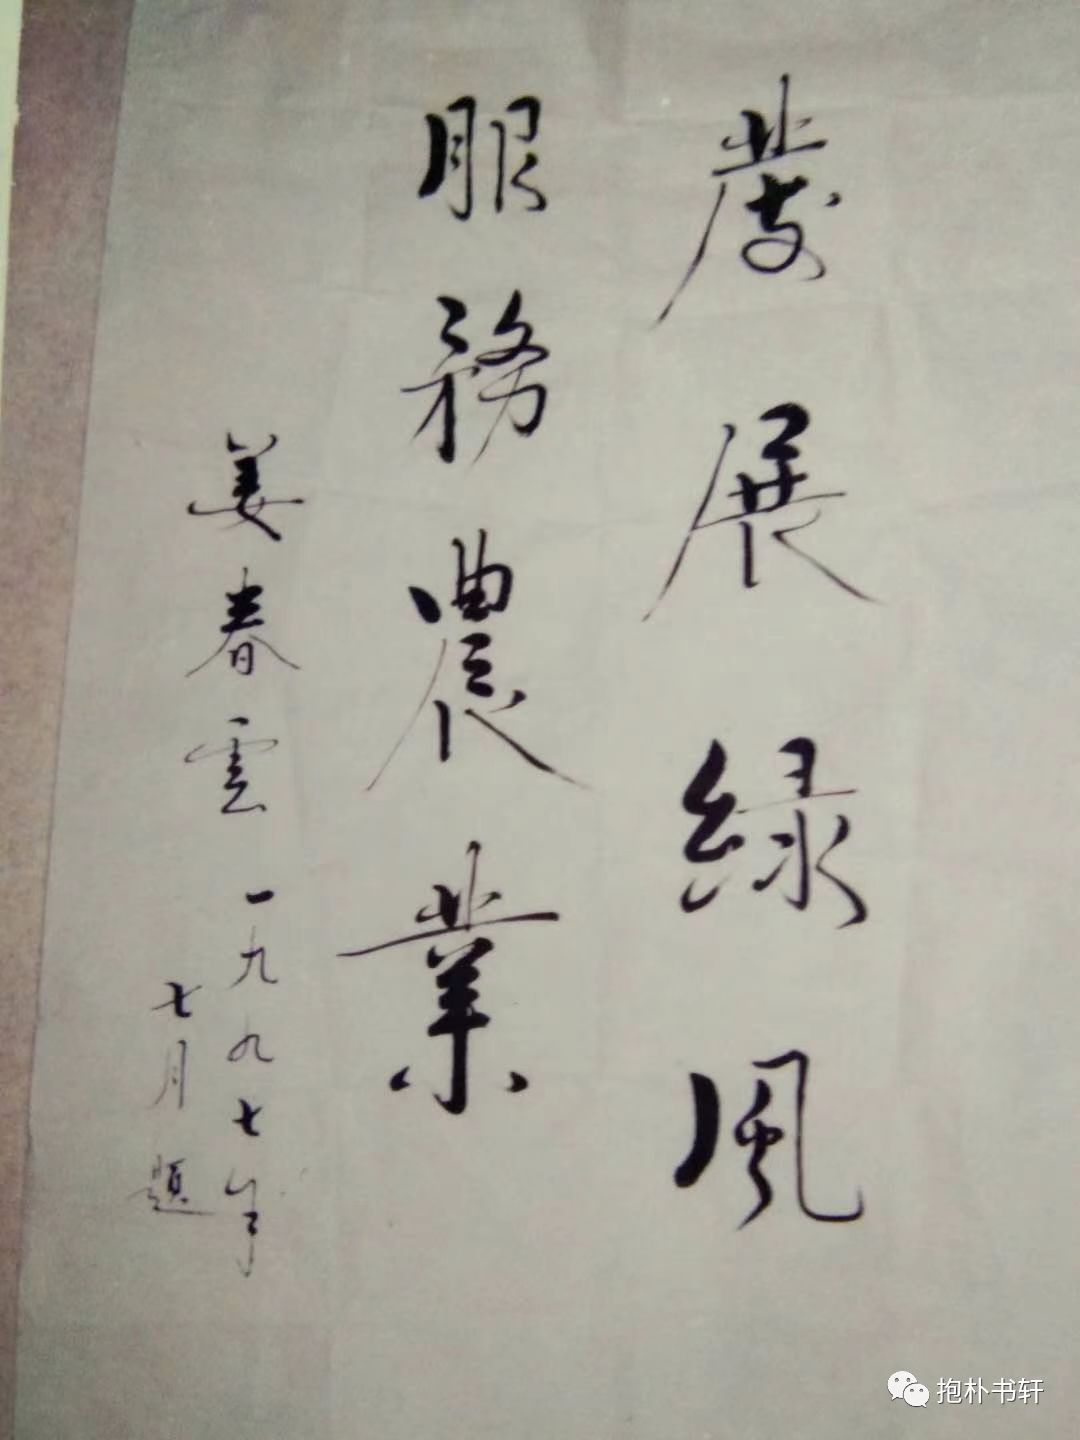 發展緑風
服務農業
姜春雲
一九九七年
七月題
抱朴书轩